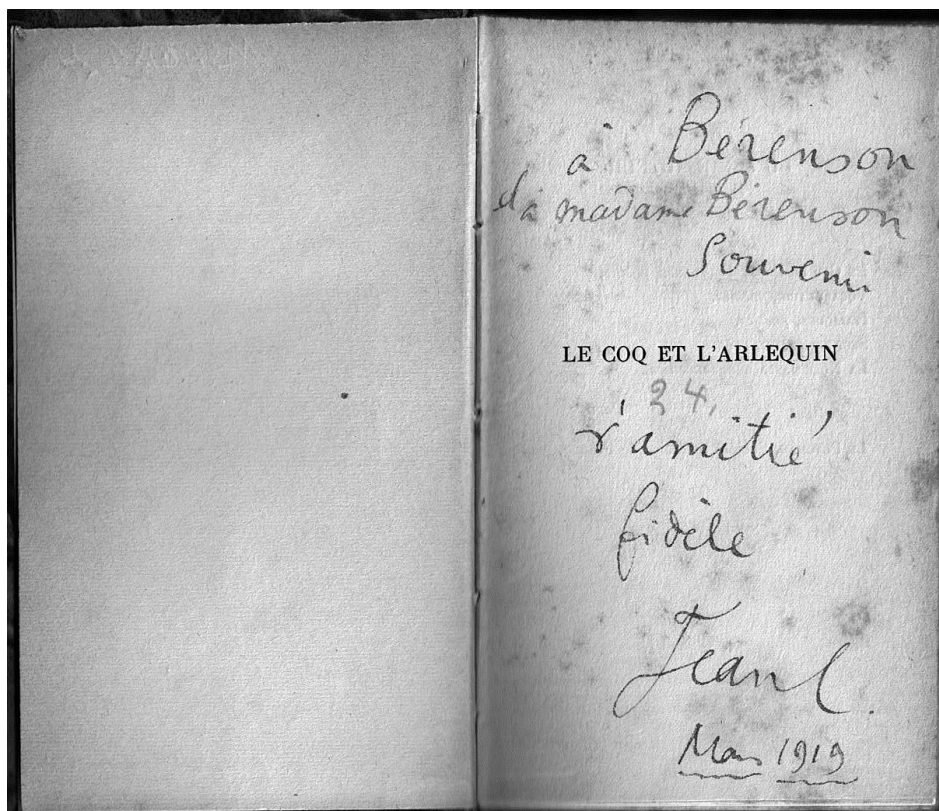 à Bérenson
& à madame Bérenson
Souvenir
LE COQ ET L'ARLEQUIN
24.
d'amitié
fidèle
Jean C.
1919